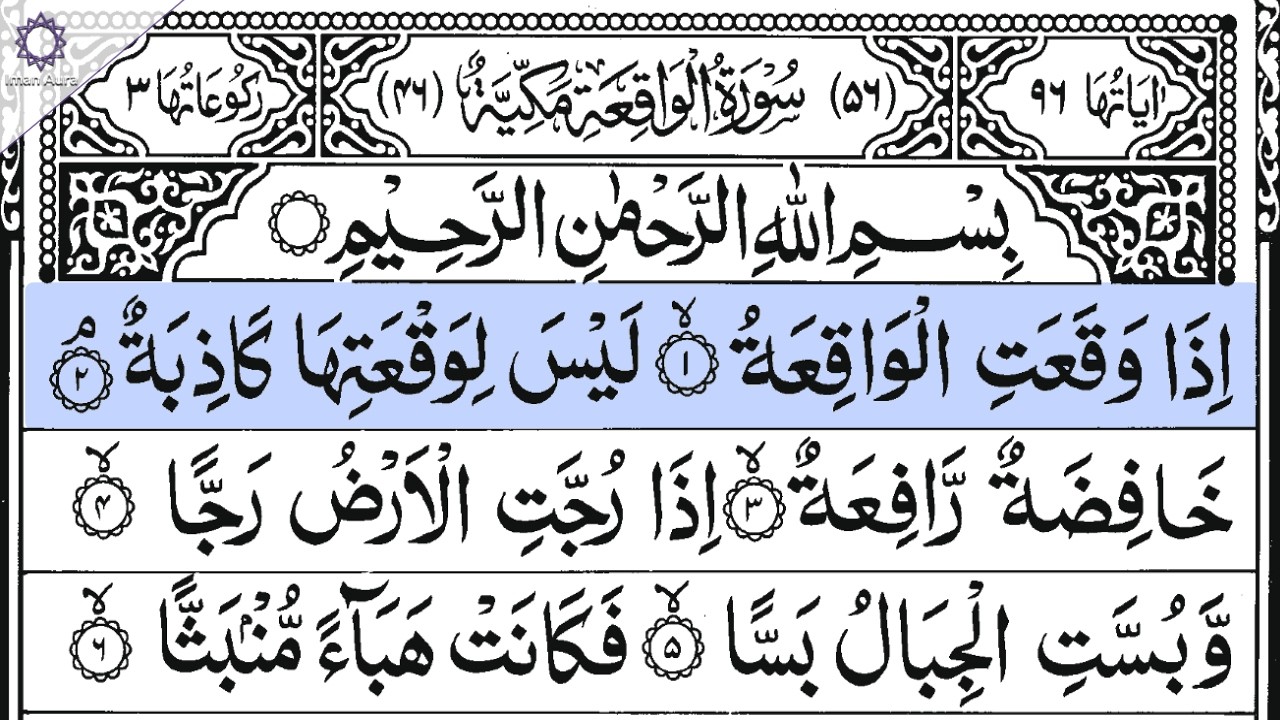 Iman Aura
اٰيَاتُهَا ٩٦ (٥٦) سُوْرَةُ الْوَاقِعَةِ مَكِّيَّةٌ (٤٦) رُكُوْعَاتُهَا ٣
بِسْمِ اللّٰهِ الرَّحْمٰنِ الرَّحِيْمِ
اِذَا وَقَعَتِ الْوَاقِعَةُ ۙ‏ ١ لَيْسَ لِوَقْعَتِهَا كَاذِبَةٌ ۘ‏ ٢
خَافِضَةٌ رَّافِعَةٌ ۙ‏ ٣ اِذَا رُجَّتِ الْاَرْضُ رَجًّا ۙ‏ ٤
وَّبُسَّتِ الْجِبَالُ بَسًّا ۙ‏ ٥ فَكَانَتْ هَبَآءً مُّنْۢبَثًّا ۙ‏ ٦